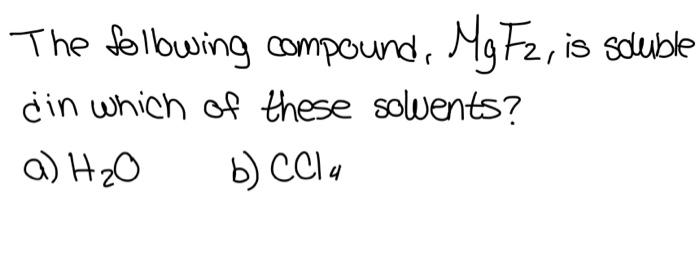 The following compound, MgF₂, is soluble
¿in which of these solvents?
a) H₂O b) CCl₄